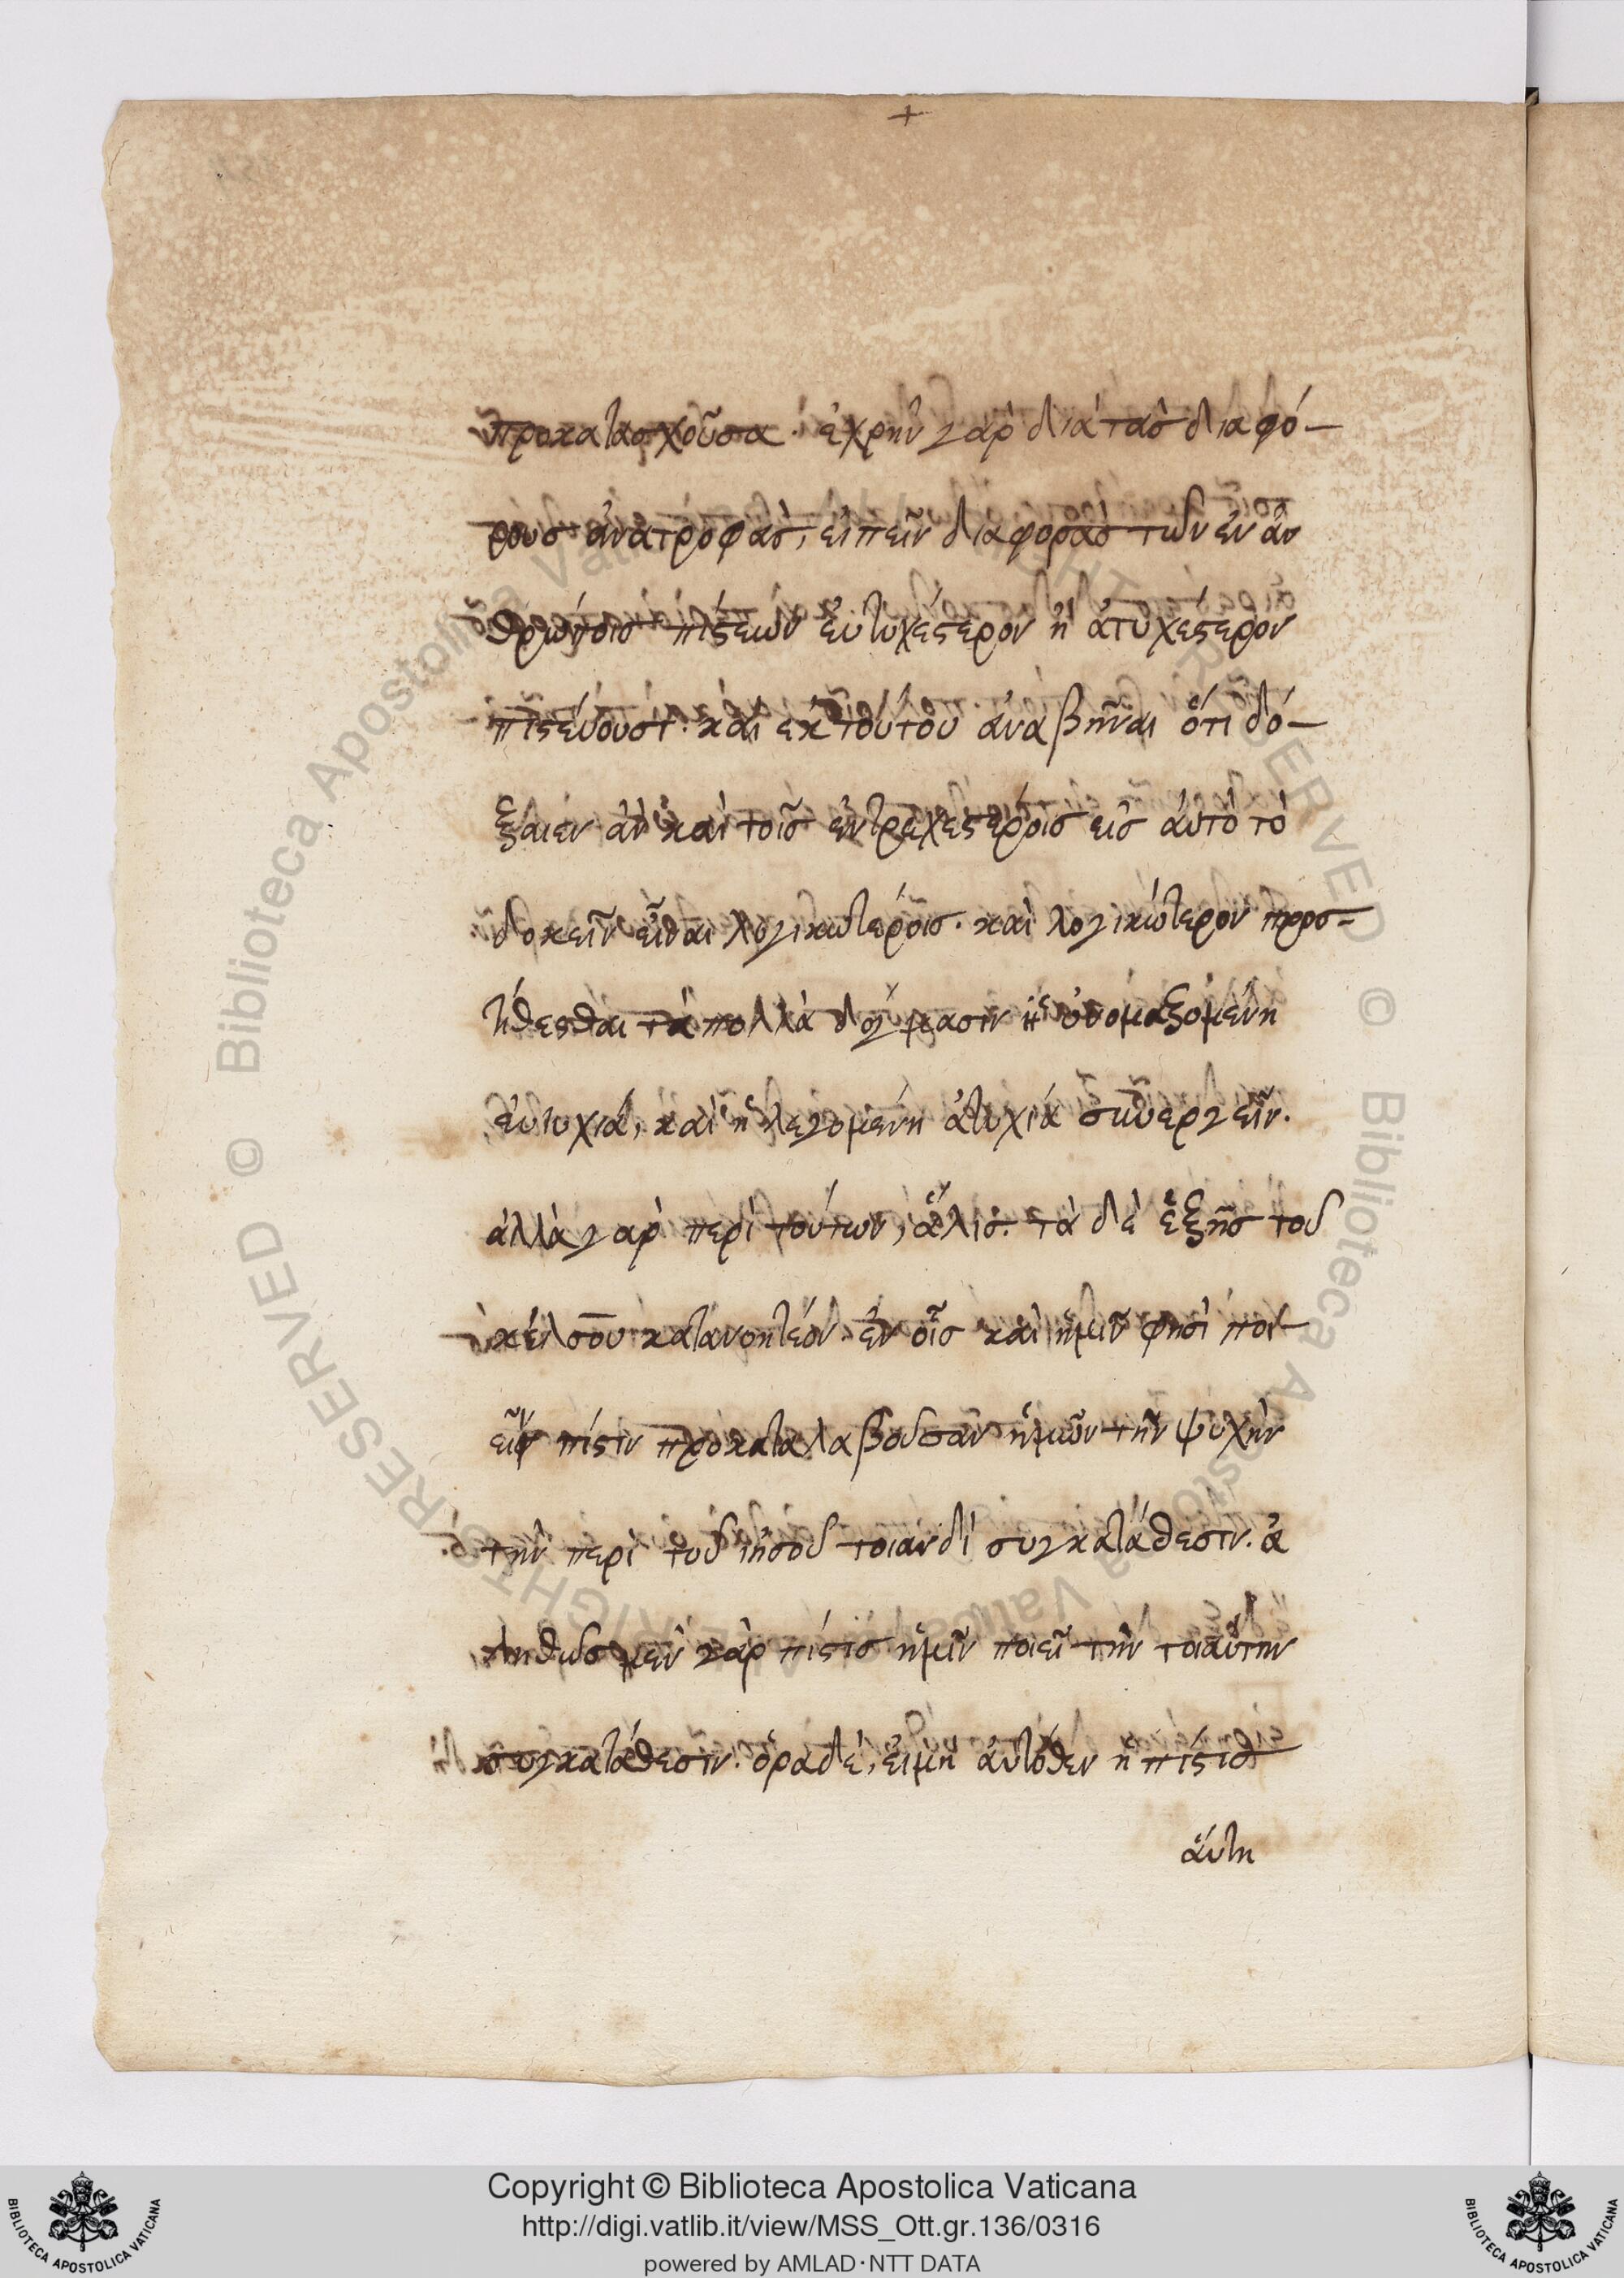 +
προκατασχοῦσα· ἐχρῆν γὰρ διὰ τὰς διαφό-
ρους ἀνατροφὰς, εἰπεῖν διαφορὰς τῶν ἐν ἀν
θρώποις πίστεων εὐτυχέστερον ἢ ἀτυχέστερον
πιστεύουσι· καὶ ἐκ τούτου ἀναβῆναι ὅτι δό-
ξαιεν ἂν καὶ τοῖς ἐντρεχεστέροις εἰς αὐτὸ τὸ
δοκεῖν εἶναι λογικωτέροις· καὶ λογικώτερον προσ-
τίθεσθαι τὰ πολλὰ δόγμασιν ἡ ὀνομαζομένη
εὐτυχία, καὶ ἡ λεγομένη ἀτυχία συνεργεῖν.
ἀλλὰ γὰρ περὶ τούτων, ἅλις· τὰ δὲ ἑξῆς τοῦ
κέλσου κατανοητέον· ἐν οἷς καὶ ἡμῖν φησὶ ποι-
εῖν πίστιν προκαταλαβοῦσαν ἡμῶν τὴν ψυχὴν
τὴν περὶ τοῦ ἰησοῦ τοιάνδι συγκατάθεσιν. ἀ
ληθῶς μὲν γὰρ πίστις ἡμῖν ποιεῖ τὴν τοιαύτην
συγκατάθεσιν· ὅρα δὲ, εἰ μὴ αὐτόθεν ἡ πίστις
αὕτη
© Biblioteca Apostolica Vaticana ALL RIGHTS RESERVED © Biblioteca Apostolica Vaticana ALL RIGHTS RESERVED
Copyright © Biblioteca Apostolica Vaticana
http://digi.vatlib.it/view/MSS_Ott.gr.136/0316
powered by AMLAD·NTT DATA
BIBLIOTECA APOSTOLICA VATICANA
BIBLIOTECA APOSTOLICA VATICANA